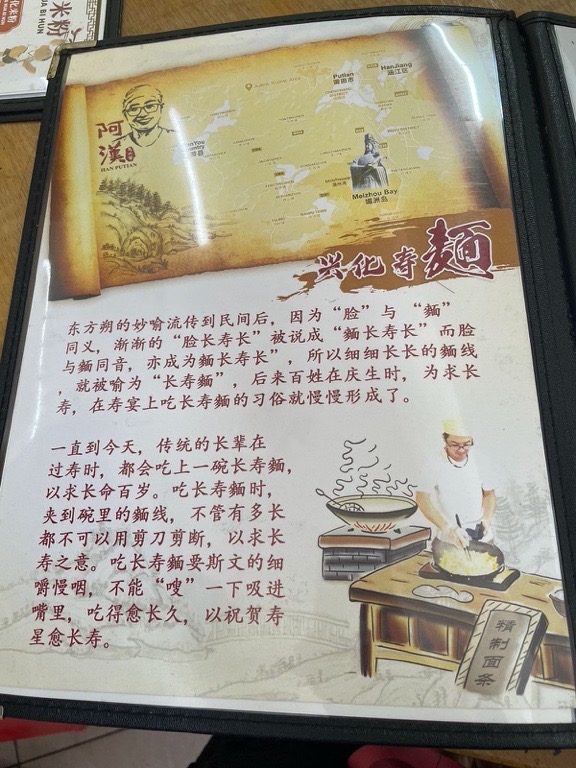 米粉
化米粉
UA BI HUN
阿漢
HAN PUTIAN
Putian
莆田市
HanJiang
涵江区
Meizhou Bay
湄洲岛
兴化寿麵
东方朔的妙喻流传到民间后，因为“脸”与 “麵”
同义，渐渐的“脸长寿长”被说成“麵长寿长”而脸
与麵同音，亦成为麵长寿长”，所以细细长长的麵线
，就被喻为“长寿麵”，后来百姓在庆生时，为求长
寿，在寿宴上吃长寿麵的习俗就慢慢形成了。
一直到今天，传统的长辈在
过寿时，都会吃上一碗长寿麵，
以求长命百岁。吃长寿麵时，
夹到碗里的麵线，不管有多长
都不可以用剪刀剪断，以求长
寿之意。吃长寿麵要斯文的细
嚼慢咽，不能“嗖”一下吸进
嘴里，吃得愈长久，以祝贺寿
星愈长寿。
精制面条